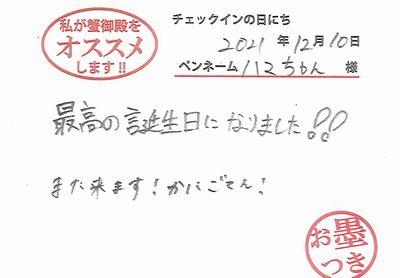 私が蟹御殿を
オススメ
します!!
チェックインの日にち
2021年12月10日
ペンネーム ハマちゃん 様
最高の誕生日になりました!!
また来ます!かにごてん!
お墨
つき